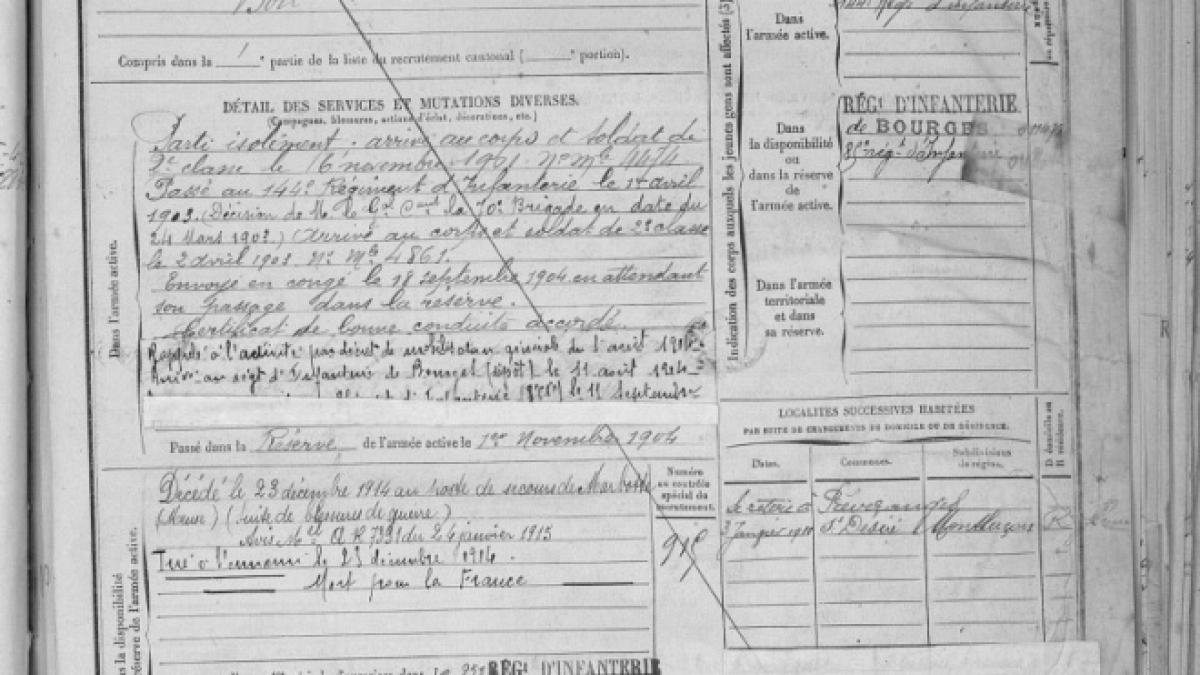 Bon
Compris dans la 1e partie de la liste du recrutement cantonal ( e portion).
DÉTAIL DES SERVICES ET MUTATIONS DIVERSES.
(Campagnes, blessures, actions d'éclat, décorations, etc.)
Dans l'armée active.
Parti isolément, arrivé au corps et soldat de
2e classe le 16 novembre 1901 No Mle 4674
Passé au 144e Régiment d'Infanterie le 1er avril
1903. (Décision de M. le Gal Cant la 70e Brigade en date du
24 Mars 1903) (arrivé au corps et soldat de 2e classe
le 2 avril 1903. No Mle 4861.
Envoyé en congé le 18 septembre 1904 en attendant
son passage dans la réserve.
Certificat de bonne conduite accordé.
Rappelé à l'activité par décret de mobilisation générale du 1 août 1914
au régt d'Infanterie de (dépôt) le 11 août 1914
d'Infanterie le 11 Septembre
Passé dans la Réserve de l'armée active le 1er Novembre 1904
Décédé le 23 décembre 1914 au poste de secours de Marbotte
(Meuse) (Suite de blessures de guerre)
Avis Mel QR 7391 du 24 janvier 1915
Tué à l'ennemi le 23 décembre 1914.
Mort pour la France
la disponibilité
réserve de l'armée active.
RÉGt D'INFANTERIE
Numéro
au contrôle
spécial du
recrutement.
915
Indication des corps auxquels les jeunes gens sont affectés (3)
Dans
l'armée active.
144e Régt d'Infanterie
Dans
la disponibilité
ou
dans la réserve
de
l'armée active.
RÉGt D'INFANTERIE
de BOURGES
85e régt d'Infanterie
Dans l'armée
territoriale
et dans
sa réserve.
LOCALITÉS SUCCESSIVES HABITÉES
PAR SUITE DE CHANGEMENTS DE DOMICILE OU DE RÉSIDENCE.
Dates.
Communes.
Subdivisions
de région.
D domicile ou
R résidence.
Se retire à
3 Janvier 1911 St Désiré Montluçon R